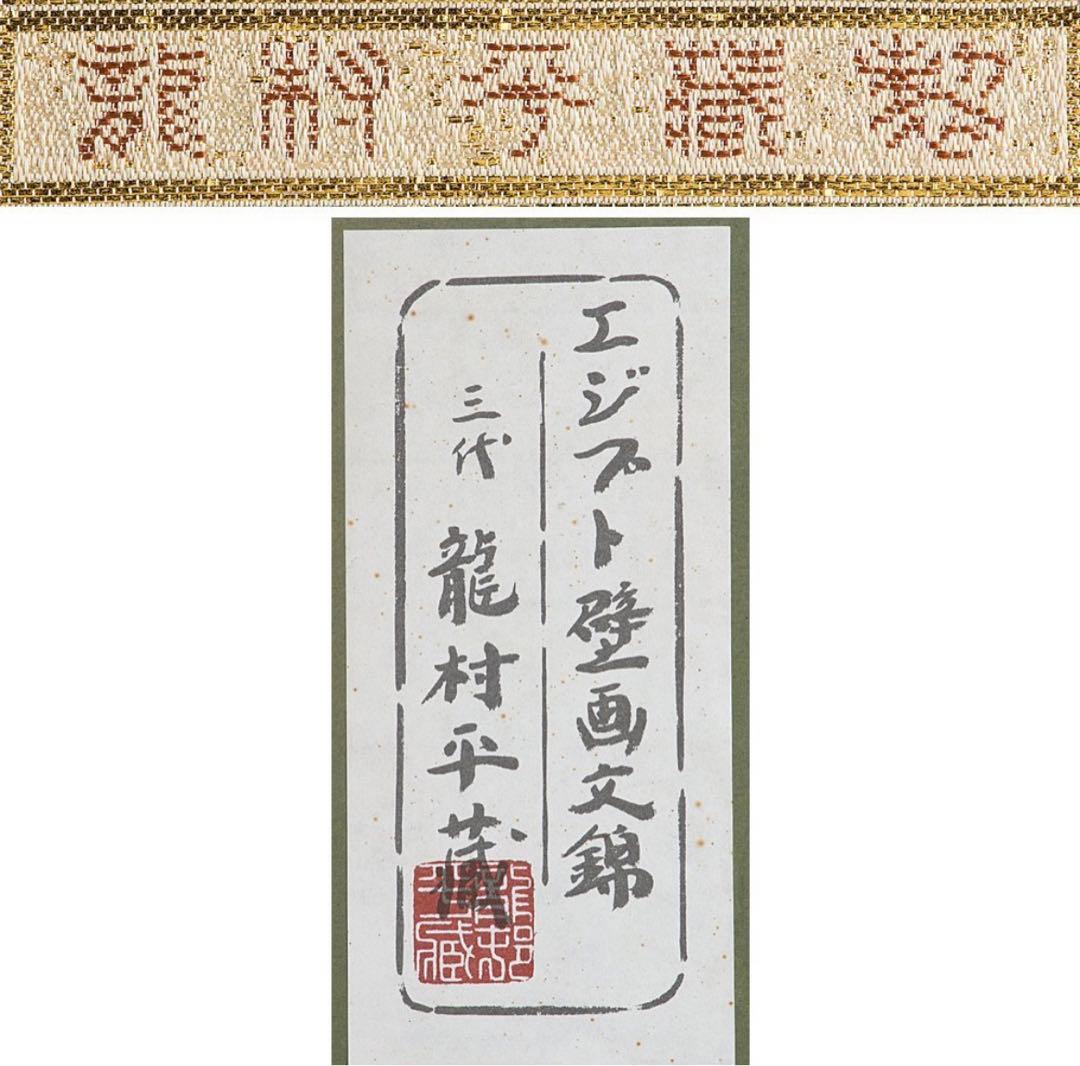 龍村平藏製
エジプト壁画文錦
三代 龍村平藏
龍邨平藏